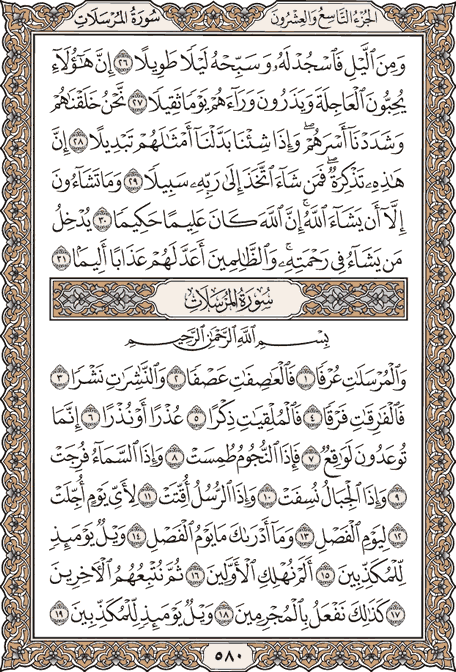 الجزء التاسع والعشرون
سورة المرسلات
وَمِنَ ٱلَّيۡلِ فَٱسۡجُدۡ لَهُۥ وَسَبِّحۡهُ لَيۡلٗا طَوِيلًا ٢٦ إِنَّ هَٰٓؤُلَآءِ
يُحِبُّونَ ٱلۡعَاجِلَةَ وَيَذَرُونَ وَرَآءَهُمۡ يَوۡمٗا ثَقِيلٗا ٢٧ نَّحۡنُ خَلَقۡنَٰهُمۡ
وَشَدَدۡنَآ أَسۡرَهُمۡۖ وَإِذَا شِئۡنَا بَدَّلۡنَآ أَمۡثَٰلَهُمۡ تَبۡدِيلًا ٢٨ إِنَّ
هَٰذِهِۦ تَذۡكِرَةٞۖ فَمَن شَآءَ ٱتَّخَذَ إِلَىٰ رَبِّهِۦ سَبِيلٗا ٢٩ وَمَا تَشَآءُونَ
إِلَّآ أَن يَشَآءَ ٱللَّهُۚ إِنَّ ٱللَّهَ كَانَ عَلِيمًا حَكِيمٗا ٣٠ يُدۡخِلُ
مَن يَشَآءُ فِي رَحۡمَتِهِۦۚ وَٱلظَّٰلِمِينَ أَعَدَّ لَهُمۡ عَذَابًا أَلِيمَۢا ٣١
سورة المرسلات
بِسۡمِ ٱللَّهِ ٱلرَّحۡمَٰنِ ٱلرَّحِيمِ
وَٱلۡمُرۡسَلَٰتِ عُرۡفٗا ١ فَٱلۡعَٰصِفَٰتِ عَصۡفٗا ٢ وَٱلنَّٰشِرَٰتِ نَشۡرٗا ٣
فَٱلۡفَٰرِقَٰتِ فَرۡقٗا ٤ فَٱلۡمُلۡقِيَٰتِ ذِكۡرًا ٥ عُذۡرًا أَوۡ نُذۡرًا ٦ إِنَّمَا
تُوعَدُونَ لَوَٰقِعٞ ٧ فَإِذَا ٱلنُّجُومُ طُمِسَتۡ ٨ وَإِذَا ٱلسَّمَآءُ فُرِجَتۡ
٩ وَإِذَا ٱلۡجِبَالُ نُسِفَتۡ ١٠ وَإِذَا ٱلرُّسُلُ أُقِّتَتۡ ١١ لِأَيِّ يَوۡمٍ أُجِّلَتۡ
١٢ لِيَوۡمِ ٱلۡفَصۡلِ ١٣ وَمَآ أَدۡرَىٰكَ مَا يَوۡمُ ٱلۡفَصۡلِ ١٤ وَيۡلٞ يَوۡمَئِذٖ
لِّلۡمُكَذِّبِينَ ١٥ أَلَمۡ نُهۡلِكِ ٱلۡأَوَّلِينَ ١٦ ثُمَّ نُتۡبِعُهُمُ ٱلۡأٓخِرِينَ
١٧ كَذَٰلِكَ نَفۡعَلُ بِٱلۡمُجۡرِمِينَ ١٨ وَيۡلٞ يَوۡمَئِذٖ لِّلۡمُكَذِّبِينَ ١٩
٥٨٠